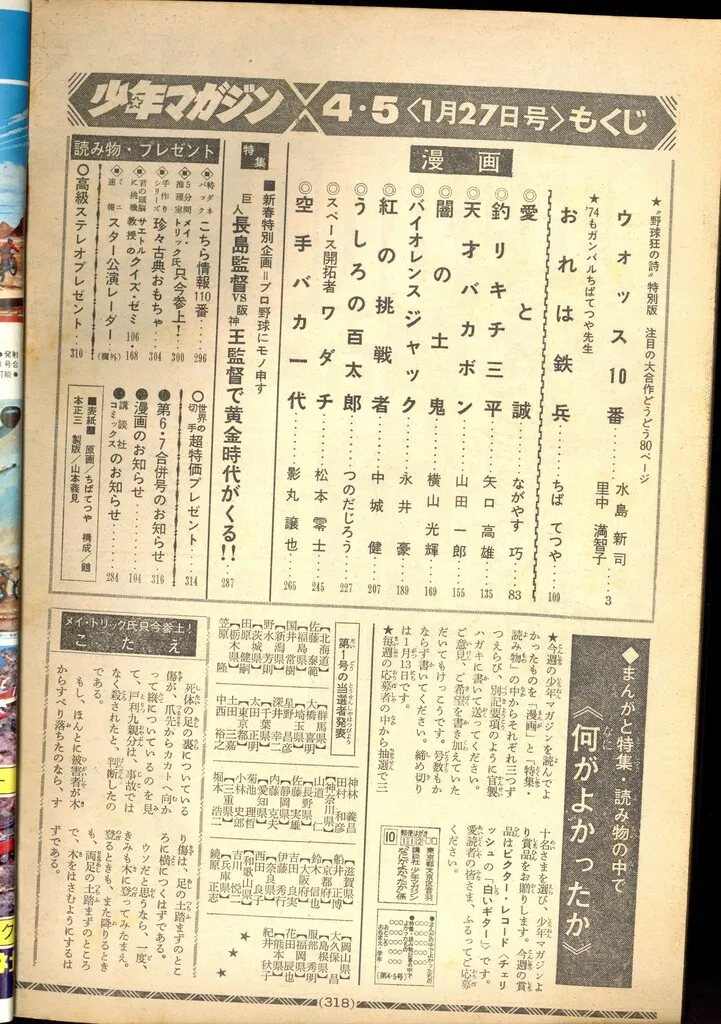 少年マガジン 4・5〈1月27日号〉もくじ
漫画
★"野球狂の詩"特別版 注目の大合作どうどう80ページ
ウォッス10番……水島新司 里中満智子……3
★'74もガンバルちばてつや先生
おれは鉄兵……ちばてつや……109
◎愛と誠……ながやす巧……83
◎釣りキチ三平……矢口高雄……135
◎天才バカボン……山田一郎……155
◎闇の土鬼……横山光輝……169
◎バイオレンスジャック……永井豪……189
◎紅の挑戦者……中城健……207
◎うしろの百太郎……つのだじろう……227
◎スペース開拓者ワダチ……松本零士……245
◎空手バカ一代……影丸譲也……265
特集
■新春特別企画=プロ野球にモノ申す
巨人長島監督VS阪神王監督で黄金時代がくる!!……287
読み物・プレゼント
■特ダネパック こちら情報110番……296
■5分間推理 メイ・トリック氏只今参上!……300
■手作りシリーズ 珍々古典おもちゃ……304
■君の頭脳に挑戦 サエトル教授のクイズ・ゼミ……106・168
■ミニ速報 スター公演レーダー……(欄外)
◎高級ステレオプレゼント……310
◎世界の切手超特価プレゼント……314
●第6・7合併号のお知らせ……316
●漫画のお知らせ……104
●講談社コミックスのお知らせ……284
■表紙■ 原画/ちばてつや 構成/鶴
本正三 製版/山本義見
◆まんがと特集・読み物の中で
《何がよかったか》
★今週の少年マガジンを読んでよ
かったものを「漫画」と「特集・
読み物」の中からそれぞれ三つず
つえらび、別記要項のように官製
ハガキに書いて送ってください。
ご意見、ご希望を書き加えていた
だいてもけっこうです。号数もか
ならず書いてください。締め切り
は1月13日です。
★毎週の応募者の中から抽選で三
十名さまを選び、少年マガジンよ
り賞品をお贈りします。今週の賞
品はビクター・レコード〈チェリ
ッシュの「白いギター」〉です。
愛読者の皆さま、ふるってご応募
ください。
郵便はがき
東京都文京区音羽
講談社 少年マガジン
なにがよかったか係
(第4・5号)
第1号の当選者発表
【北海道】
佐藤泰範
【福島県】
国井常樹
【新潟県】
野水芳則
【茨城県】
田原健嗣
【栃木県】
笠原隆
【群馬県】
大橋嘉明
【埼玉県】
星野昌彦
深井幸二
【千葉県】
太田正明
【東京都】
土田三嘉
中西裕之
【神奈川県】
神林義昌
田村和彦
山道仁
【長野県】
佐藤実雄
【静岡県】
内藤克夫
【愛知県】
菊池理哲
小林史郎
【三重県】
堀本浩二
【滋賀県】
船井正博
【京都府】
鈴木信也
【大阪府】
吉田良実
伊藤秀行
【奈良県】
西田良子
【和歌山県】
吉川悦二
【兵庫県】
鏡原正志
【岡山県】
大久保昌
【島根県】
服部秀明
【福岡県】
花田辰也
【熊本県】
紀井秋子
メイ・トリック氏只今参上!
こたえ
死体の足の裏についている
傷が、爪先からカカトへ向か
って縦についているのを見
て、戸利九親分は、事故では
なく殺されたと、判断したの
である。
もし、ほんとに被害者が木
からすべり落ちたのなら、す
り傷は、足の土踏まずのとこ
ろに横につくはずである。
ウソだと思うなら、一度、
きみも木に登ってみたまえ。
登るときも、また降りるとき
も、両足の土踏まずのところ
で、木をはさむようにするは
ずである。
(318)